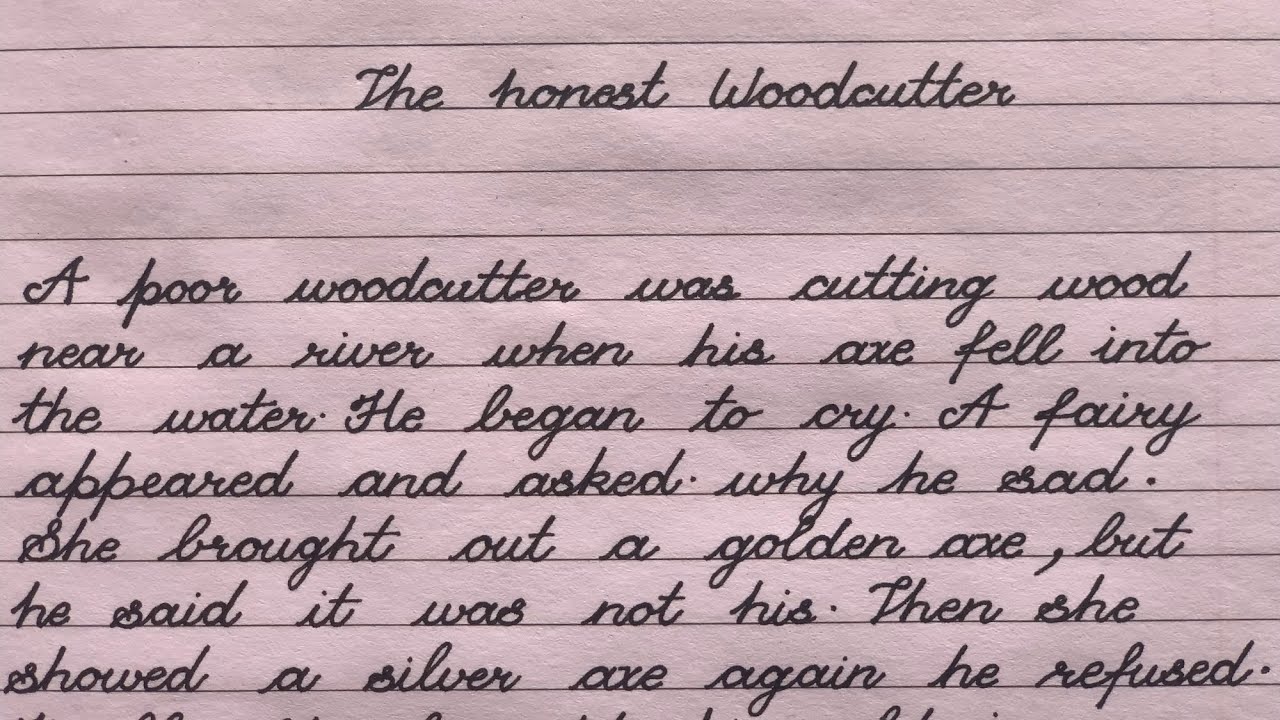 The honest Woodcutter
A poor woodcutter was cutting wood
near a river when his axe fell into
the water. He began to cry. A fairy
appeared and asked. why he sad.
She brought out a golden axe, but
he said it was not his. Then she
showed a silver axe again he refused.